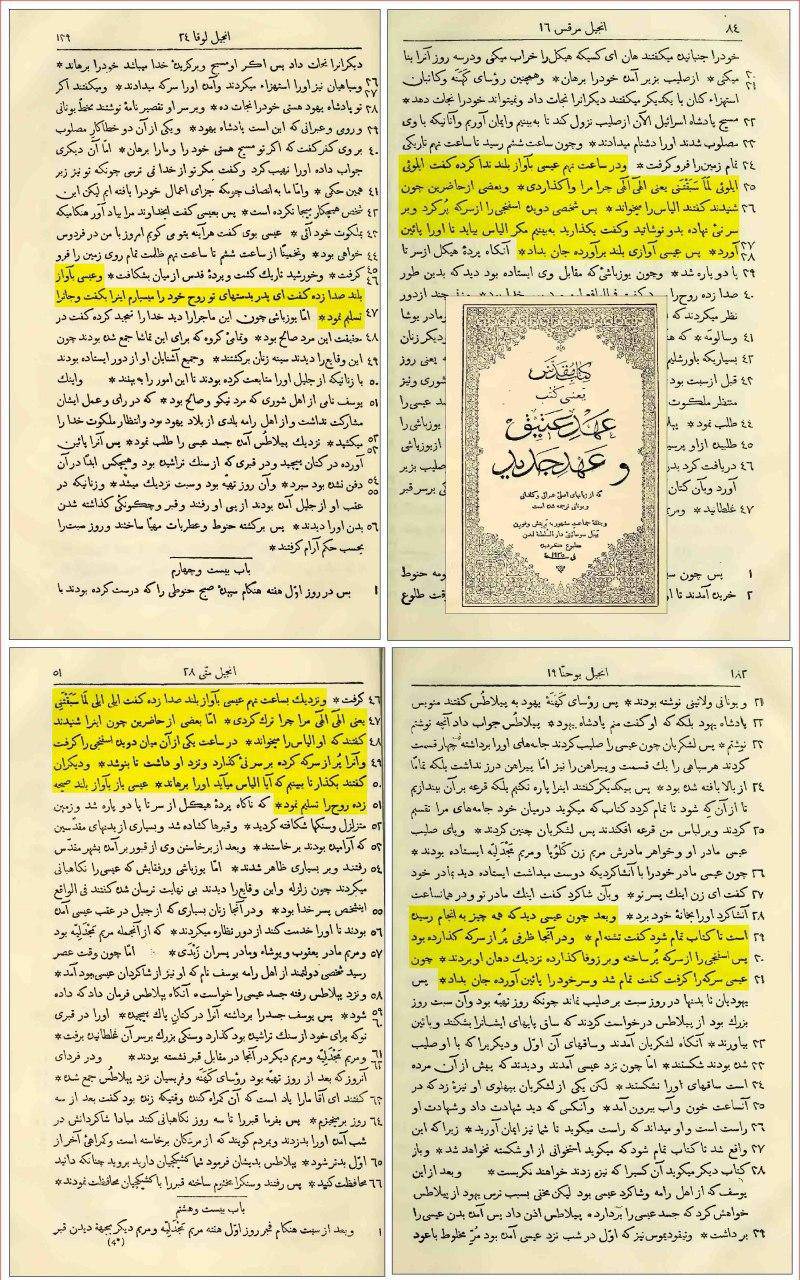 ٨٤ انجیل مرقس ١٦
خودرا جنبانیده میکفتند هان ای کسیکه هیکل را خراب میکنی ودرسه روز آنرا بنا
٣٠ میکنی * ازصلیب بزیر آمده خودرا برهان * وهمچنین رؤسای کهنه وکاتبان
٣١ استهزاء کنان با یکدیکر میکفتند دیکرانرا نجات داد ونمیتواند خودرا نجات دهد *
٣٢ مسیح پادشاه اسرائیل الآن ازصلیب نزول کند تا به‌بینیم وایمان آوریم وآنانیکه با وی
٣٣ مصلوب شدند اورا دشنام میدادند * وچون ساعت ششم رسید تا ساعت نهم تاریکی
٣٤ تمام زمین‌را فرو کرفت * ودر ساعت نهم عیسی بآواز بلند ندا کرده کفت ایلوئی
٣٥ ایلوئی لما سبقتنی یعنی الهی الهی چرا مرا واکذاردی * وبعضی ازحاضرین چون
٣٦ شنیدند کفتند الیاس را میخواند * پس شخصی دویده اسفنجی را ازسرکه پر کرد وبر
سر نی نهاده بدو نوشانید وکفت بکذارید به‌بینیم مکر الیاس بیاید تا اورا پائین
٣٧ ٣٨ آورد * پس عیسی آوازی بلند برآورده جان بداد * آنکاه پردهٔ هیکل ازسر تا
٣٩ پا دو پاره شد * وچون یوزباشی که مقابل وی ایستاده بود دید که بدین طور
٤٠ صدا زده روح را
نظر میکردند که
٤١ وسالومه *
٤٢ بسیاریکه باورشلیم
٤٣ قبل ازسبت بود
منتظر ملکوت
٤٤ طلب نمود *
٤٥ طلبیده ازاو پرسید
٤٦ دریافت کرد بدن
آورد وبآن کتان
٤٧ غلطانید * ومریم
١ پس چون
٢ خریده آمدند تا او
کتاب مقدس
یعنی کتب
عهد عتیق
و عهد جدید
که از زبانهای اصلی عبرانی وکلدانی
ویونانی ترجمه شده است
انجیل لوقا ٢٤ ١٣٩
دیکرانرا نجات داد پس اکر او مسیح وبرکزیدهٔ خدا میباشد خودرا برهاند *
٣٦ ٣٧ وسپاهیان نیز اورا استهزاء میکردند وآمده اورا سرکه میدادند * ومیکفتند اکر
٣٨ تو پادشاه یهود هستی خودرا نجات ده * وبر سر او تقصیر نامهٔ نوشتند بخط یونانی
٣٩ ورومی وعبرانی که این است پادشاه یهود * ویکی از آن دو خطاکار مصلوب
٤٠ بر وی کفر کفت که اکر تو مسیح هستی خودرا ومارا برهان * اما آن دیکری
جواب داده اورا نهیب کرد وکفت مکر تو از خدا نمی ترسی چونکه تو نیز زیر
٤١ همین حکمی * واما ما به انصاف چونکه جزای اعمال خودرا یافته ایم لیکن این
٤٢ شخص هیچکار بیجا نکرده است * پس بعیسی کفت ایخداوند مرا بیاد آور هنکامیکه
٤٣ بملکوت خود آئی * عیسی بوی کفت هرآینه بتو می کویم امروز با من در فردوس
٤٤ خواهی بود * وتخمیناً از ساعت ششم تا ساعت نهم ظلمت تمام روی زمین را فرو
٤٥ ٤٦ کرفت * وخورشید تاریک کشت وپردهٔ قدس از میان بشکافت * وعیسی بآواز
بلند صدا زده کفت ای پدر بدستهای تو روح خود را میسپارم اینرا بکفت وجانرا
٤٧ تسلیم نمود * اما یوزباشی چون این ماجرارا دید خدا را تمجید کرده کفت در
٤٨ حقیقت این مرد صالح بود * وتمامیٔ کروه که برای این تماشا جمع شده بودند چون
٤٩ این وقایع را دیدند سینه زنان برکشتند * وجمیع آشنایان او از دور ایستاده بودند
٥٠ با زنانیکه از جلیل اورا متابعت کرده بودند تا این امور را به‌بینند * واینک
٥١ یوسف نامی از اهل شوری که مرد نیکو وصالح بود * که در رای وعمل ایشان
مشارکت نداشت واز اهل رامه بلدی از بلاد یهود بود وانتظار ملکوت خدا را
٥٢ ٥٣ میکشید * نزدیک پیلاطس آمده جسد عیسی را طلب نمود * پس آنرا پائین
آورده در کتان پیچید ودر قبری که از سنک تراشیده بود وهیچکس ابداً در آن
٥٤ ٥٥ دفن نشده بود سپرد * وآن روز تهیه بود وسبت نزدیک میشد * وزنانیکه در
عقب او از جلیل آمده بودند از پی او رفتند وقبر وچکونکیٔ کذاشته شدن
٥٦ بدن اورا دیدند * پس برکشته حنوط وعطریات مهیا ساختند وروز سبت‌را
بحسب حکم آرام کرفتند *
باب بیست وچهارم
١ پس در روز اول هفته هنکام سپیدهٔ صبح حنوطی را که درست کرده بودند با
١٨٢ انجیل یوحنا ١٩
٢١ ویونانی ولاتینی نوشته بودند * پس رؤسای کهنهٔ یهود به پیلاطس کفتند منویس
٢٢ پادشاه یهود بلکه که او کفت منم پادشاه یهود * پیلاطس جواب داد آنچه نوشتم
٢٣ نوشتم * پس لشکریان چون عیسی را صلیب کردند جامه‌های اورا برداشته چهار قسمت
کردند هر سپاهی را یک قسمت وپیراهن را نیز اما پیراهن درز نداشت بلکه تماماً
٢٤ از بالا بافته شده بود * پس بیکدیکر کفتند اینرا پاره نکنیم بلکه قرعه بر آن بیندازیم
تا از آن که شود تا تمام کردد کتاب که میکوید درمیان خود جامه‌های مرا تقسیم
٢٥ کردند وبر لباس من قرعه افکندند پس لشکریان چنین کردند * وپای صلیب
عیسی مادر او وخواهر مادرش مریم زن کلوپا ومریم مجدلیه ایستاده بودند *
٢٦ چون عیسی مادر خودرا با آن شاکردیکه دوست میداشت ایستاده دید بمادر خود
٢٧ کفت ای زن اینک پسر تو * وبآن شاکرد کفت اینک مادر تو ودر همانساعت
٢٨ آنشاکرد اورا بخانهٔ خود برد * وبعد چون عیسی دید که همه چیز به انجام رسیده
٢٩ است تا کتاب تمام شود کفت تشنه‌ام * ودر آنجا ظرفی پر از سرکه کذارده بود
٣٠ پس اسفنجی را از سرکه پر ساخته وبر زوفا کذارده نزدیک دهان او بردند * چون
٣١ عیسی سرکه را کرفت کفت تمام شد وسر خودرا پائین آورده جان بداد * پس
یهودیان تا بدنها در روز سبت بر صلیب نماند چونکه روز تهیه بود وآن سبت روز
بزرک بود از پیلاطس درخواست کردند که ساق پایهای ایشانرا بشکنند وپائین
٣٢ بیاورند * آنکاه لشکریان آمدند وساقهای آن اول ودیکریرا که با او صلیب
٣٣ شده بودند شکستند * اما چون نزد عیسی آمدند ودیدند که پیش از آن مرده
٣٤ است ساقهای اورا نشکستند * لکن یکی از لشکریان بپهلوی او نیزهٔ زد که در
٣٥ آنساعت خون وآب بیرون آمد * وآنکسی که دید شهادت داد وشهادت او
٣٦ راست است واو میداند که راست میکوید تا شما نیز ایمان آورید * زیرا که این
٣٧ واقع شد تا کتاب تمام شود که میکوید استخوانی از او شکسته نخواهد شد * وباز
٣٨ کتاب دیکر میکوید آن کسیرا که نیزه زدند خواهند نکریست * وبعد ازاین
یوسف که از اهل رامه وشاکرد عیسی بود لیکن مخفی بسبب ترس یهود از پیلاطس
خواهش کرد که جسد عیسی را بردارد * پیلاطس اذن داد پس آمده بدن عیسی را
٣٩ برداشت * ونیقودیموس نیز که اول در شب نزد عیسی آمده بود مر مخلوط با عود
انجیل متی ٢٨ ٥١
٤٦ کرفت * ونزدیک بساعت نهم عیسی بآواز بلند صدا زده کفت ایلی ایلی لما سبقتنی
٤٧ یعنی الهی الهی مرا چرا ترک کردی * اما بعضی از حاضرین چون اینرا شنیدند
٤٨ کفتند که او الیاس را میخواند * در ساعت یکی از آن میان دویده اسفنجی را کرفت
٤٩ وآنرا پر از سرکه کرده بر سر نی کذارد ونزد او داشت تا بنوشد * ودیکران
٥٠ کفتند بکذار تا ببینیم که آیا الیاس میآید اورا برهاند * عیسی باز بآواز بلند صیحه
٥١ زده روح را تسلیم نمود * که ناکاه پردهٔ هیکل از سر تا پا دو پاره شد وزمین
٥٢ متزلزل وسنکها شکافته کردید * وقبرها کشاده شد وبسیاری از بدنهای مقدسین
٥٣ که آرامیده بودند برخاستند * وبعد از برخاستن وی از قبور بر آمده بشهر مقدس
٥٤ رفتند وبر بسیاری ظاهر شدند * اما یوزباشی ورفقایش که عیسی را نکاهبانی
میکردند چون زلزله واین وقایع را دیدند بی نهایت ترسان شده کفتند فی الواقع
٥٥ اینشخص پسر خدا بود * ودر آنجا زنان بسیاری که از جلیل در عقب عیسی آمده
٥٦ بودند تا اورا خدمت کنند از دور نظاره میکردند * که از آنجمله مریم مجدلیه بود
٥٧ ومریم مادر یعقوب ویوشاء ومادر پسران زبدی * اما چون وقت عصر
رسید شخصی دولتمند از اهل رامه یوسف نام که او نیز از شاکردان عیسی بود آمد *
٥٨ ونزد پیلاطس رفته جسد عیسی را خواست آنکاه پیلاطس فرمان داد که داده
٥٩ ٦٠ شود * پس یوسف جسدرا برداشته آنرا در کتان پاک پیچیده * اورا در قبری
نو که برای خود از سنک تراشیده بود کذارد وسنکی بزرک بر سر آن غلطانیده برفت *
٦١ ٦٢ ومریم مجدلیه ومریم دیکر در آنجا در مقابل قبر نشسته بودند * ودر فردای
آنروز که بعد از روز تهیه بود رؤسای کهنه وفریسیان نزد پیلاطس جمع شده *
٦٣ کفتند ای آقا مارا یاد است که آن کمراه کننده وقتیکه زنده بود کفت بعد از سه
٦٤ روز برمیخیزم * پس بفرما قبررا تا سه روز نکاهبانی کنند مبادا شاکردانش در
شب آمده اورا بدزدند وبمردم کویند که از مردکان برخاسته است وکمراهیٔ آخر از
٦٥ اول بدتر شود * پیلاطس بدیشان فرمود شما کشیکچیان دارید بروید چنانکه دانید
٦٦ محافظت کنید * پس رفتند وسنک‌را مختوم ساخته قبررا با کشیکچیان محافظت نمودند *
باب بیست وهشتم
١ وبعد از سبت هنکام فجر روز اول هفته مریم مجدلیه ومریم دیکر بجهة دیدن قبر
(4*)